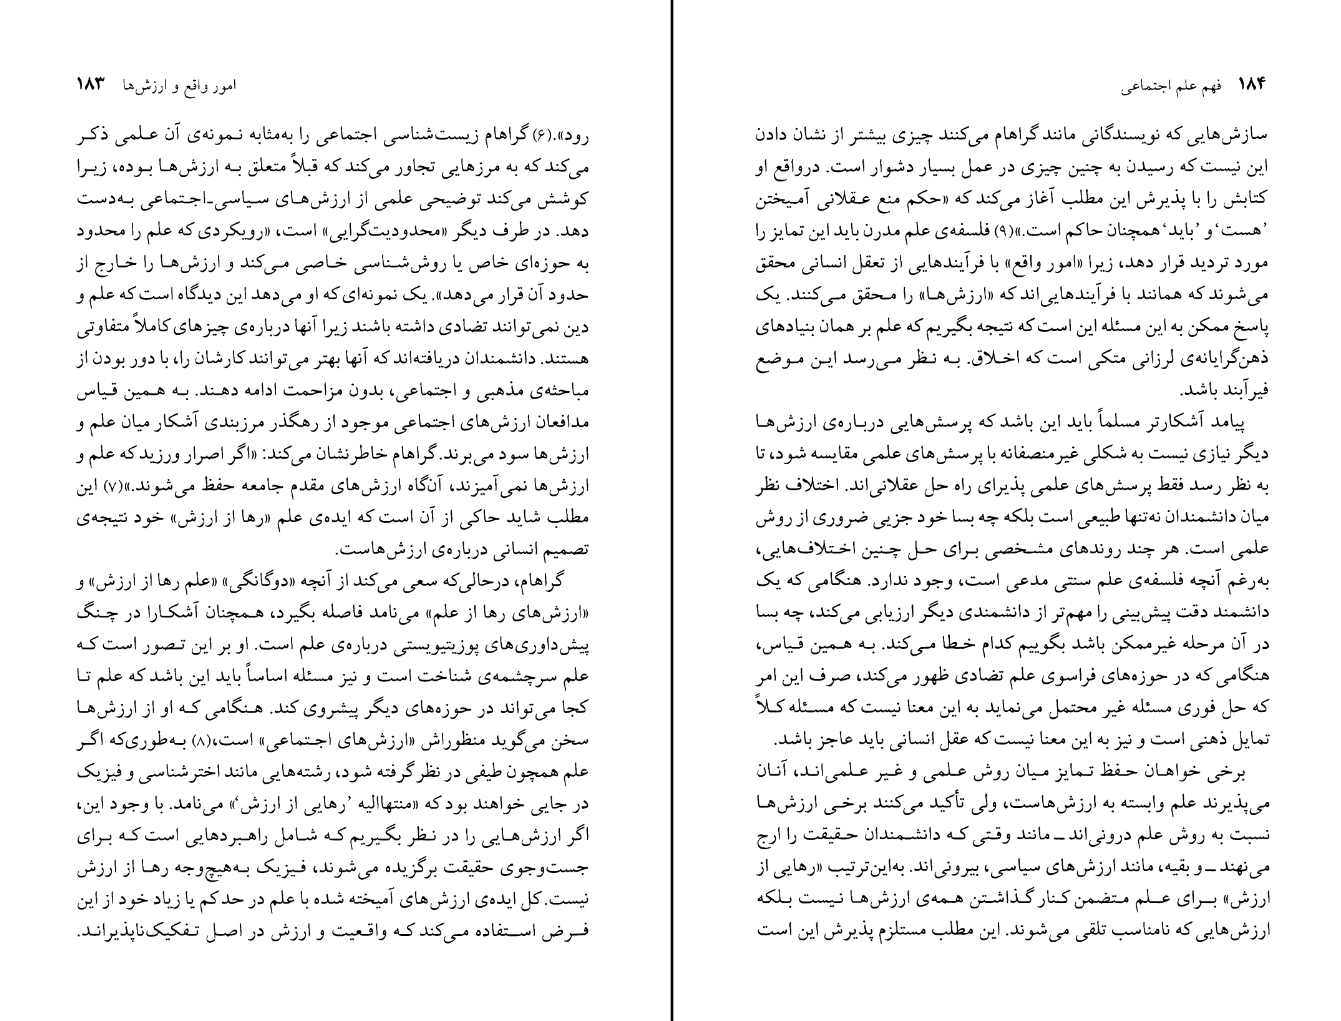 امور واقع و ارزش‌ها ۱۸۳
رود».(۶) گراهام زیست‌شناسی اجتماعی را به‌مثابه نمونه‌ی آن علمی ذکر
می‌کند که به مرزهایی تجاور می‌کند که قبلاً متعلق به ارزش‌ها بوده، زیرا
کوشش می‌کند توضیحی علمی از ارزش‌های سیاسی‌ـ‌اجتماعی به‌دست
دهد. در طرف دیگر «محدودیت‌گرایی» است، «رویکردی که علم را محدود
به حوزه‌ای خاص یا روش‌شناسی خاصی می‌کند و ارزش‌ها را خارج از
حدود آن قرار می‌دهد». یک نمونه‌ای که او می‌دهد این دیدگاه است که علم و
دین نمی‌توانند تضادی داشته باشند زیرا آنها درباره‌ی چیزهای کاملاً متفاوتی
هستند. دانشمندان دریافته‌اند که آنها بهتر می‌توانند کارشان را، با دور بودن از
مباحثه‌ی مذهبی و اجتماعی، بدون مزاحمت ادامه دهند. به همین قیاس
مدافعان ارزش‌های اجتماعی موجود از رهگذر مرزبندی آشکار میان علم و
ارزش‌ها سود می‌برند. گراهام خاطرنشان می‌کند: «اگر اصرار ورزید که علم و
ارزش‌ها نمی‌آمیزند، آن‌گاه ارزش‌های مقدم جامعه حفظ می‌شوند.»(۷) این
مطلب شاید حاکی از آن است که ایده‌ی علم «رها از ارزش» خود نتیجه‌ی
تصمیم انسانی درباره‌ی ارزش‌هاست.
گراهام، درحالی‌که سعی می‌کند از آنچه «دوگانگی» «علم رها از ارزش» و
«ارزش‌های رها از علم» می‌نامد فاصله بگیرد، همچنان آشکارا در چنگ
پیش‌داوری‌های پوزیتیویستی درباره‌ی علم است. او بر این تصور است که
علم سرچشمه‌ی شناخت است و نیز مسئله اساساً باید این باشد که علم تا
کجا می‌تواند در حوزه‌های دیگر پیشروی کند. هنگامی که او از ارزش‌ها
سخن می‌گوید منظوراش «ارزش‌های اجتماعی» است،(۸) به‌طوری‌که اگر
علم همچون طیفی در نظر گرفته شود، رشته‌هایی مانند اخترشناسی و فیزیک
در جایی خواهند بود که «منتهاالیه ’رهایی از ارزش‘» می‌نامد. با وجود این،
اگر ارزش‌هایی را در نظر بگیریم که شامل راهبردهایی است که برای
جست‌وجوی حقیقت برگزیده می‌شوند، فیزیک به‌هیچ‌وجه رها از ارزش
نیست. کل ایده‌ی ارزش‌های آمیخته شده با علم در حدکم یا زیاد خود از این
فرض استفاده می‌کند که واقعیت و ارزش در اصل تفکیک‌ناپذیراند.
۱۸۴ فهم علم اجتماعی
سازش‌هایی که نویسندگانی مانند گراهام می‌کنند چیزی بیشتر از نشان دادن
این نیست که رسیدن به چنین چیزی در عمل بسیار دشوار است. درواقع او
کتابش را با پذیرش این مطلب آغاز می‌کند که «حکم منع عقلانی آمیختن
’هست‘ و ’باید‘ همچنان حاکم است.»(۹) فلسفه‌ی علم مدرن باید این تمایز را
مورد تردید قرار دهد، زیرا «امور واقع» با فرآیندهایی از تعقل انسانی محقق
می‌شوند که همانند با فرآیندهایی‌اند که «ارزش‌ها» را محقق می‌کنند. یک
پاسخ ممکن به این مسئله این است که نتیجه بگیریم که علم بر همان بنیادهای
ذهن‌گرایانه‌ی لرزانی متکی است که اخلاق. به نظر می‌رسد این موضع
فیرآبند باشد.
پیامد آشکارتر مسلماً باید این باشد که پرسش‌هایی درباره‌ی ارزش‌ها
دیگر نیازی نیست به شکلی غیرمنصفانه با پرسش‌های علمی مقایسه شود، تا
به نظر رسد فقط پرسش‌های علمی پذیرای راه حل عقلانی‌اند. اختلاف نظر
میان دانشمندان نه‌تنها طبیعی است بلکه چه بسا خود جزیی ضروری از روش
علمی است. هر چند روندهای مشخصی برای حل چنین اختلاف‌هایی،
به‌رغم آنچه فلسفه‌ی علم سنتی مدعی است، وجود ندارد. هنگامی که یک
دانشمند دقت پیش‌بینی را مهم‌تر از دانشمندی دیگر ارزیابی می‌کند، چه بسا
در آن مرحله غیرممکن باشد بگوییم کدام خطا می‌کند. به همین قیاس،
هنگامی که در حوزه‌های فراسوی علم تضادی ظهور می‌کند، صرف این امر
که حل فوری مسئله غیر محتمل می‌نماید به این معنا نیست که مسئله کلاً
تمایل ذهنی است و نیز به این معنا نیست که عقل انسانی باید عاجز باشد.
برخی خواهان حفظ تمایز میان روش علمی و غیر علمی‌اند، آنان
می‌پذیرند علم وابسته به ارزش‌هاست، ولی تأکید می‌کنند برخی ارزش‌ها
نسبت به روش علم درونی‌اند ــ مانند وقتی که دانشمندان حقیقت را ارج
می‌نهند ــ و بقیه، مانند ارزش‌های سیاسی، بیرونی‌اند. به‌این‌ترتیب «رهایی از
ارزش» برای علم متضمن کنار گذاشتن همه‌ی ارزش‌ها نیست بلکه
ارزش‌هایی که نامناسب تلقی می‌شوند. این مطلب مستلزم پذیرش این است